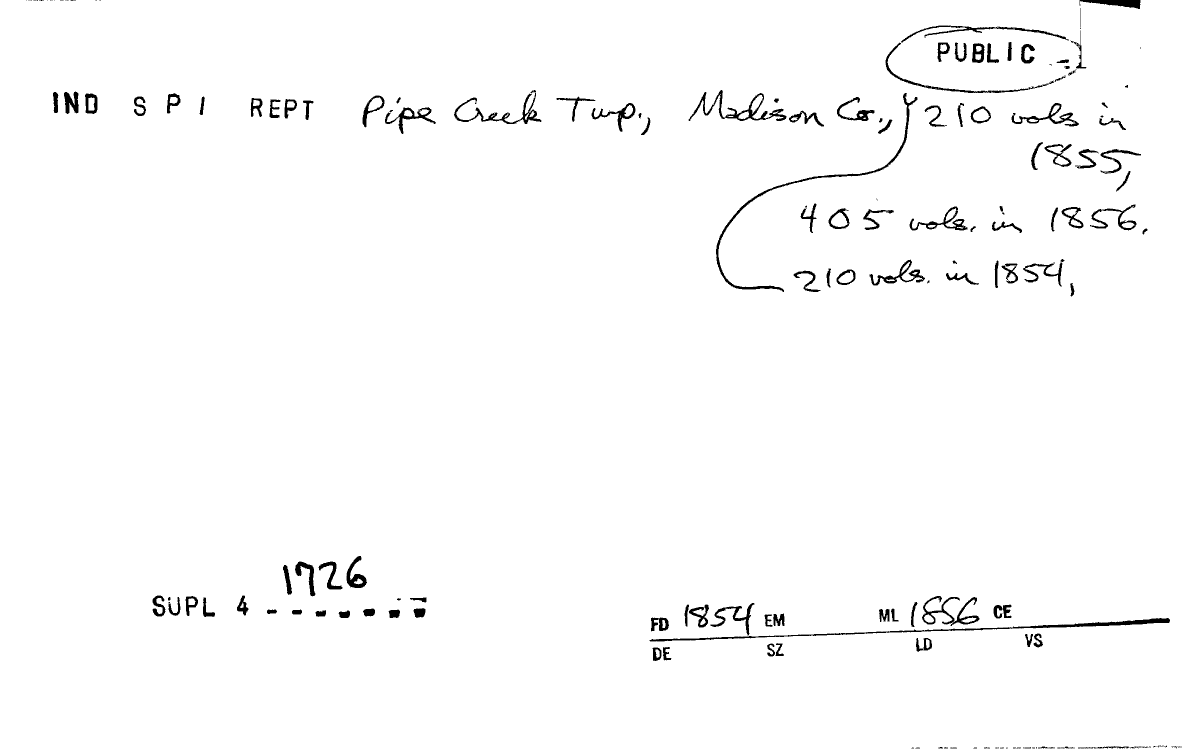 PUBLIC
IND S P I REPT Pipe Creek Twp., Madison Co., 210 vols in
1855,
405 vols. in 1856.
210 vols. in 1854,
1726
SUPL 4
FD 1854 EM ML 1856 CE
DE SZ LD VS